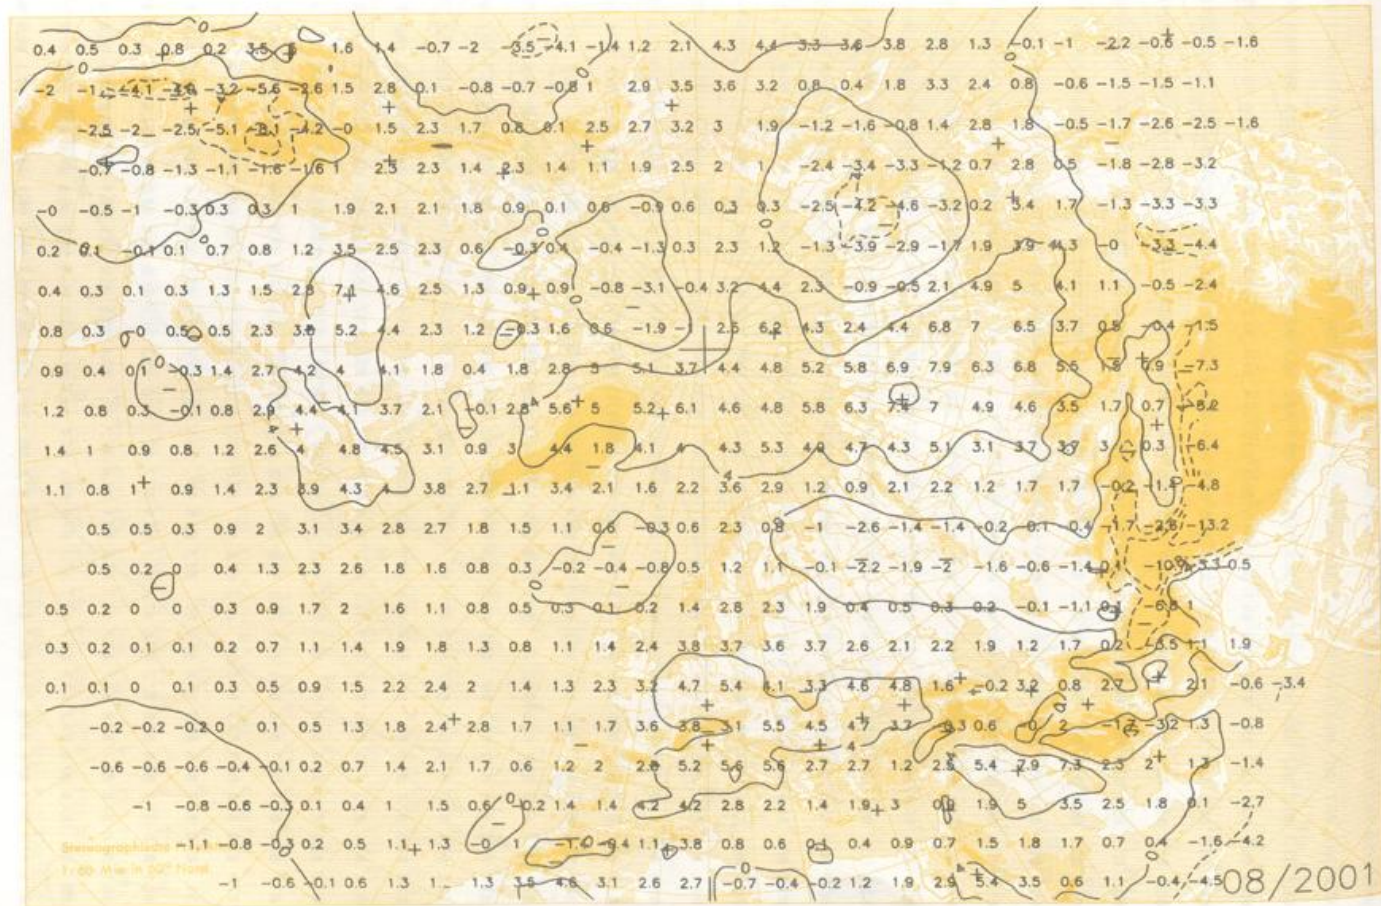 0.4 0.5 0.3 0.8 0.2 3.5 1.6 1.4 -0.7 -2 -3.5 -4.1 -1.4 1.2 2.1 4.3 4.4 3.3 3.6 3.8 2.8 1.3 -0.1 -1 -2.2 -0.6 -0.5 -1.6
-2 -1 -4.1 -3.2 -5.6 -2.6 1.5 2.8 0.1 -0.8 -0.7 -0.8 1 2.9 3.5 3.6 3.2 0.8 0.4 1.8 3.3 2.4 0.8 -0.6 -1.5 -1.5 -1.1
-2.5 -2 -2.5 -5.1 -8.1 -4.2 -0 1.5 2.3 1.7 0.6 0.1 2.5 2.7 3.2 3 1.9 -1.2 -1.6 -0.8 1.4 2.8 1.8 -0.5 -1.7 -2.6 -2.5 -1.6
-0.7 -0.8 -1.3 -1.1 -1.6 -1.6 1 2.3 2.3 1.4 2.3 1.4 1.1 1.9 2.5 2 1 -2.4 -3.4 -3.3 -1.2 0.7 2.8 0.5 -1.8 -2.8 -3.2
-0 -0.5 -1 -0.3 0.3 0.3 1 1.9 2.1 2.1 1.8 0.9 0.1 0.6 -0.9 0.6 0.3 0.3 -2.5 -4.2 -4.6 -3.2 0.2 3.4 1.7 -1.3 -3.3 -3.3
0.2 0.1 -0.1 0.1 0.7 0.8 1.2 3.5 2.5 2.3 0.6 -0.3 0.4 -0.4 -1.3 0.3 2.3 1.2 -1.3 -3.9 -2.9 -1.7 1.9 3.9 4.3 -0 -3.3 -4.4
0.4 0.3 0.1 0.3 1.3 1.5 2.8 7.1 4.6 2.5 1.3 0.9 0.9 -0.8 -3.1 -0.4 3.2 4.4 2.3 -0.9 -0.5 2.1 4.9 5 4.1 1.1 -0.5 -2.4
0.8 0.3 -0 0.5 0.5 2.3 3.8 5.2 4.4 2.3 1.2 -0.3 1.6 0.6 -1.9 -1 2.6 6.2 4.3 2.4 4.4 6.8 7 6.5 3.7 0.5 -0.4 -1.5
0.9 0.4 0.1 -0.3 1.4 2.7 4.2 4 4.1 1.8 0.4 1.8 2.8 5 5.1 3.7 4.4 4.8 5.2 5.8 6.9 7.9 6.3 6.8 5.5 1.5 0.9 -7.3
1.2 0.8 0.3 -0.1 0.8 2.9 4.4 4.1 3.7 2.1 -0.1 2.8 5.6 5 5.2 6.1 4.6 4.8 5.8 6.3 7.4 7 4.9 4.6 3.5 1.7 0.7 -8.2
1.4 1 0.9 0.8 1.2 2.6 4 4.8 4.5 3.1 0.9 3 4.4 1.8 4.1 4 4.3 5.3 4.9 4.7 4.3 5.1 3.1 3.7 3.7 3 0.3 -6.4
1.1 0.8 1 0.9 1.4 2.3 3.9 4.3 4 3.8 2.7 1.1 3.4 2.1 1.6 2.2 3.6 2.9 1.2 0.9 2.1 2.2 1.2 1.7 1.7 -0.2 -4.8
0.5 0.5 0.3 0.9 2 3.1 3.4 2.8 2.7 1.8 1.5 1.1 0.6 -0.3 0.6 2.3 0.8 -1 -2.6 -1.4 -1.4 -0.2 -0.1 -0.4 -1.7 -2.6 -13.2
0.5 0.2 0 0.4 1.3 2.3 2.6 1.8 1.6 0.8 0.3 -0.2 -0.4 -0.8 0.5 1.2 1.1 -0.1 -2.2 -1.9 -2 -1.6 -0.6 -1.4 0.1 -3.3 0.5
0.5 0.2 0 0 0.3 0.9 1.7 2 1.6 1.1 0.8 0.5 0.3 0.1 0.2 1.4 2.8 2.3 1.9 0.4 0.5 0.3 0.2 -0.1 -1.1 0.1 -6.8 1
0.3 0.2 0.1 0.1 0.2 0.7 1.1 1.4 1.9 1.8 1.3 0.8 1.1 1.4 2.4 3.8 3.7 3.6 3.7 2.6 2.1 2.2 1.9 1.2 1.7 0.2 -3.5 1.1 1.9
0.1 0.1 0 0.1 0.3 0.5 0.9 1.5 2.2 2.4 2 1.4 1.3 2.3 3.2 4.7 5.4 4.1 3.3 4.6 4.8 1.6 -0.2 3.2 0.8 2.7 1 2.1 -0.6 -3.4
-0.2 -0.2 -0.2 0 0.1 0.5 1.3 1.8 2.4 2.8 1.7 1.1 1.7 3.6 3.8 3.1 5.5 4.5 4.7 3.7 0.3 0.6 -0 2 -1.7 -3.2 1.3 -0.8
-0.6 -0.6 -0.6 -0.4 -0.1 0.2 0.7 1.4 2.1 1.7 0.6 1.2 2 2.8 5.2 5.6 5.6 2.7 2.7 1.2 2.5 5.4 7.9 7.3 2.3 2 1.3 -1.4
-1 -0.8 -0.6 -0.3 0.1 0.4 1 1.5 0.6 -0.2 1.4 1.4 4.2 4.2 2.8 2.2 1.4 1.9 3 0.9 1.9 5 3.5 2.5 1.8 0.1 -2.7
-1.1 -0.8 -0.3 0.2 0.5 1.1 1.3 -0 1 -1.4 -0.4 1.1 3.8 0.8 0.6 0.1 0.4 0.9 0.7 1.5 1.8 1.7 0.7 0.4 -1.6 -4.2
-1 -0.6 -0.1 0.6 1.3 1.3 3.5 4.6 3.1 2.6 2.7 -0.7 -0.4 -0.2 1.2 1.9 2.9 5.4 3.5 0.6 1.1 -0.4 -4.5
08/2001